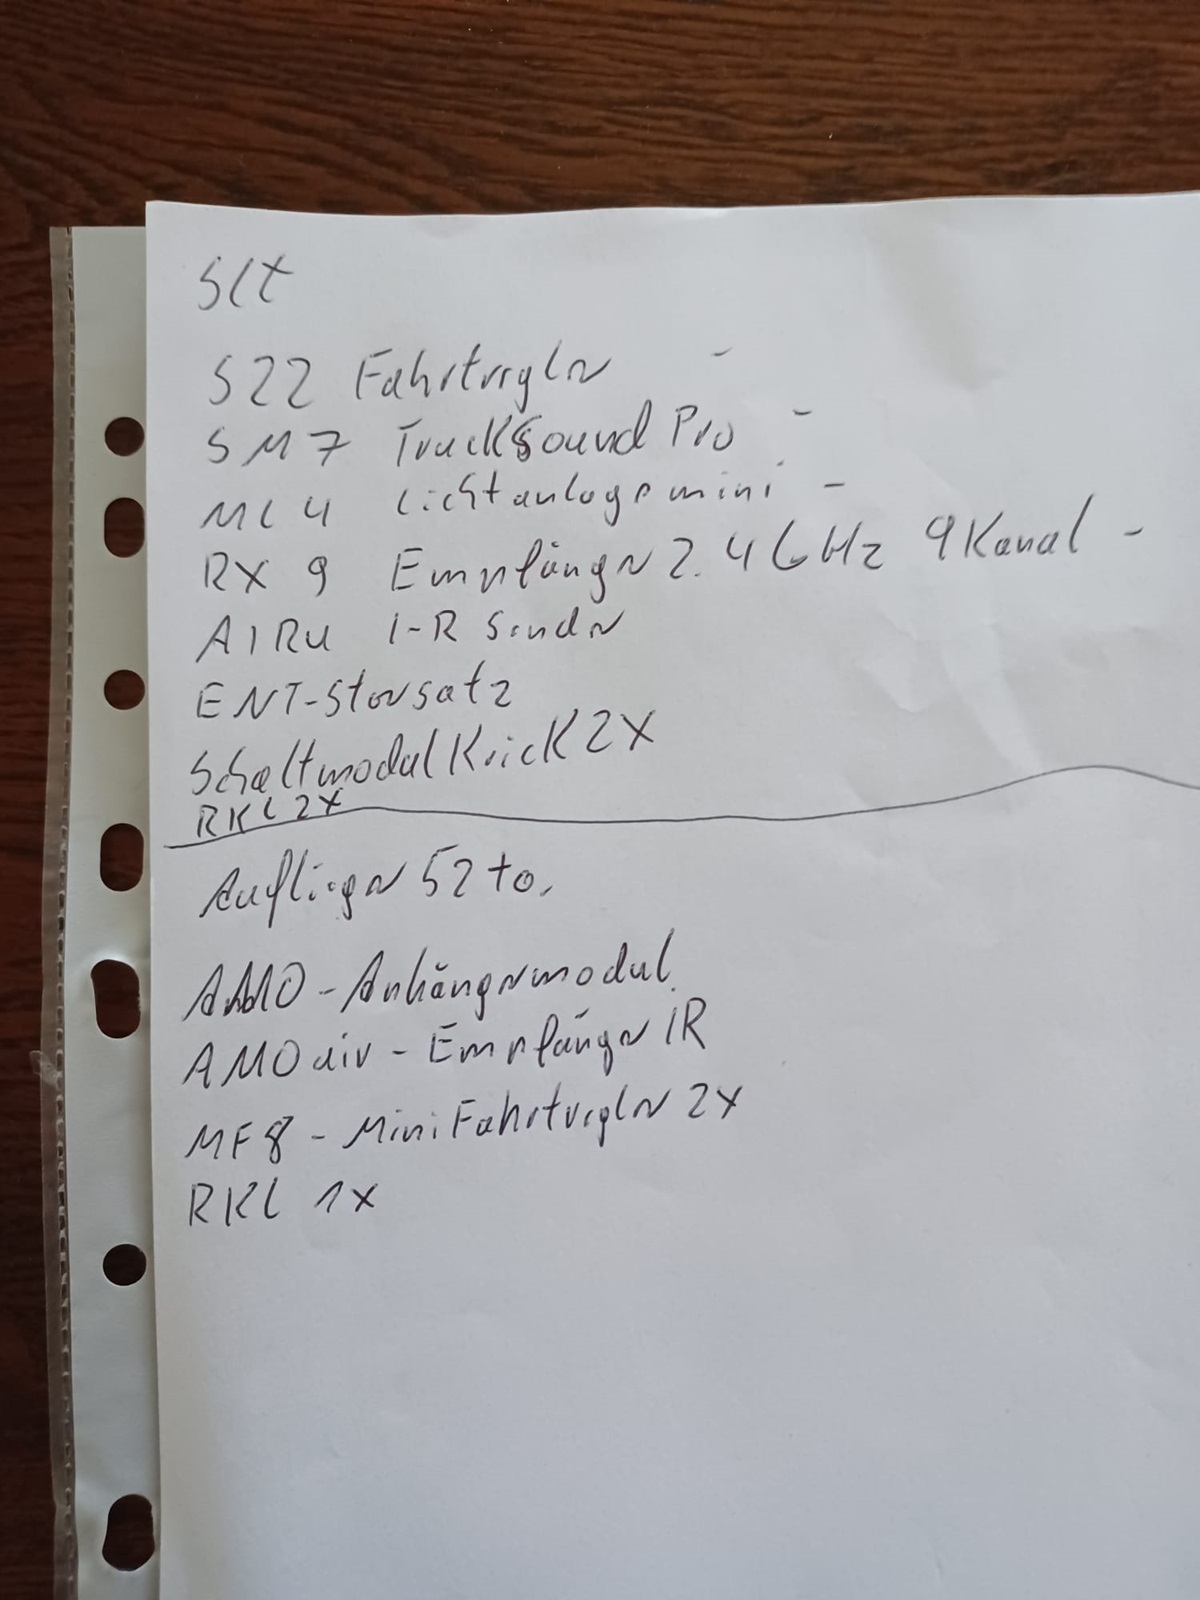 SLT
S22 Fahrtregler -
SM7 TruckSound Pro -
ML4 Lichtanlage mini -
RX 9 Empfänger 2.4 GHz 9Kanal -
AIR4 I-R Sender
ENT-Störsatz
Schaltmodul Krick 2X
RKL 2X
Auflieger 52 to.
AMO - Anhängermodul
AMOair - Empfänger IR
MF8 - Mini Fahrtregler 2x
RKL 1x